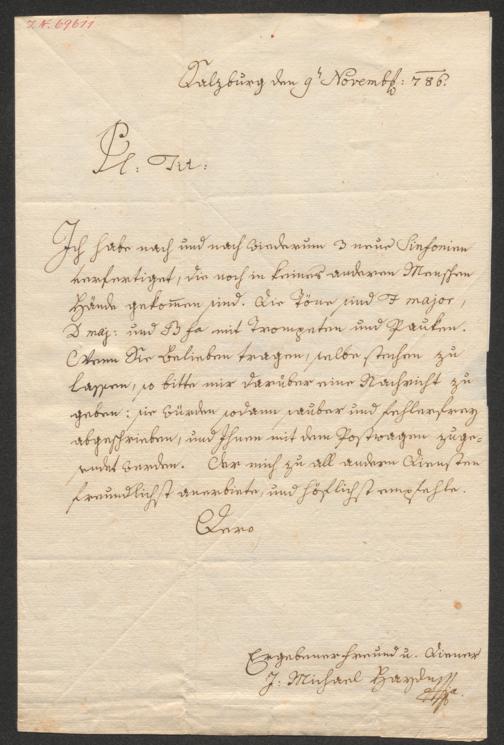 I.N. 69611
Salzburg den 9t Novemb: 786.
Pl: Tit:
Ich habe nach und nach wiederum 3 neue Sinfonien
verfertiget, die noch in keines anderen Menschen
Hände gekommen sind. Die Töne sind F major,
D maj: und B fa mit Trompeten und Pauken.
Wenn Sie Belieben tragen, selbe stechen zu
lassen, so bitte mir darüber eine Nachricht zu
geben: sie würden sodann sauber und fehlerfrey
abgeschrieben, und Ihnen mit dem Postwagen zuge-
sendet werden. Der mich zu all andern Diensten
freundlichst anerbiete, und höflichst empfehle.
Dero
Ergebener Freund u. Diener
J: Michael Haydn